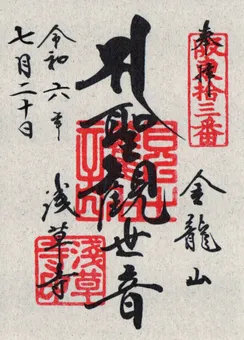 奉拝
坂東拾三番
金龍山
聖観世音
浅草寺
令和六年
七月二十日
浅草寺